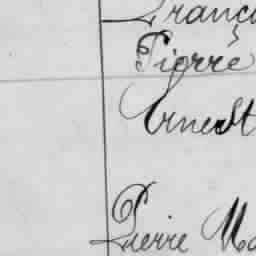 Franço
Pierre
Ernest
Pierre Ma